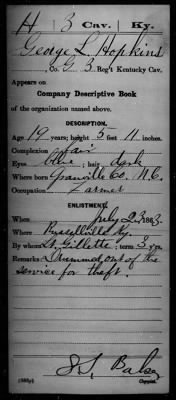 H | 3 Cav. | Ky.
George L. Hopkins
, Co. G, 3 Reg't Kentucky Cav.
Appears on
Company Descriptive Book
of the organization named above.
DESCRIPTION.
Age 19 years; height 5 feet 11 inches.
Complexion fair
Eyes blue; hair dark
Where born Granville Co. N.C.
Occupation Farmer
ENLISTMENT.
When July 23, 1863.
Where Russellville Ky.
By whom Lt. Gillette; term 3 y'rs.
Remarks: Drummed out of the
service for theft.
Copyist.